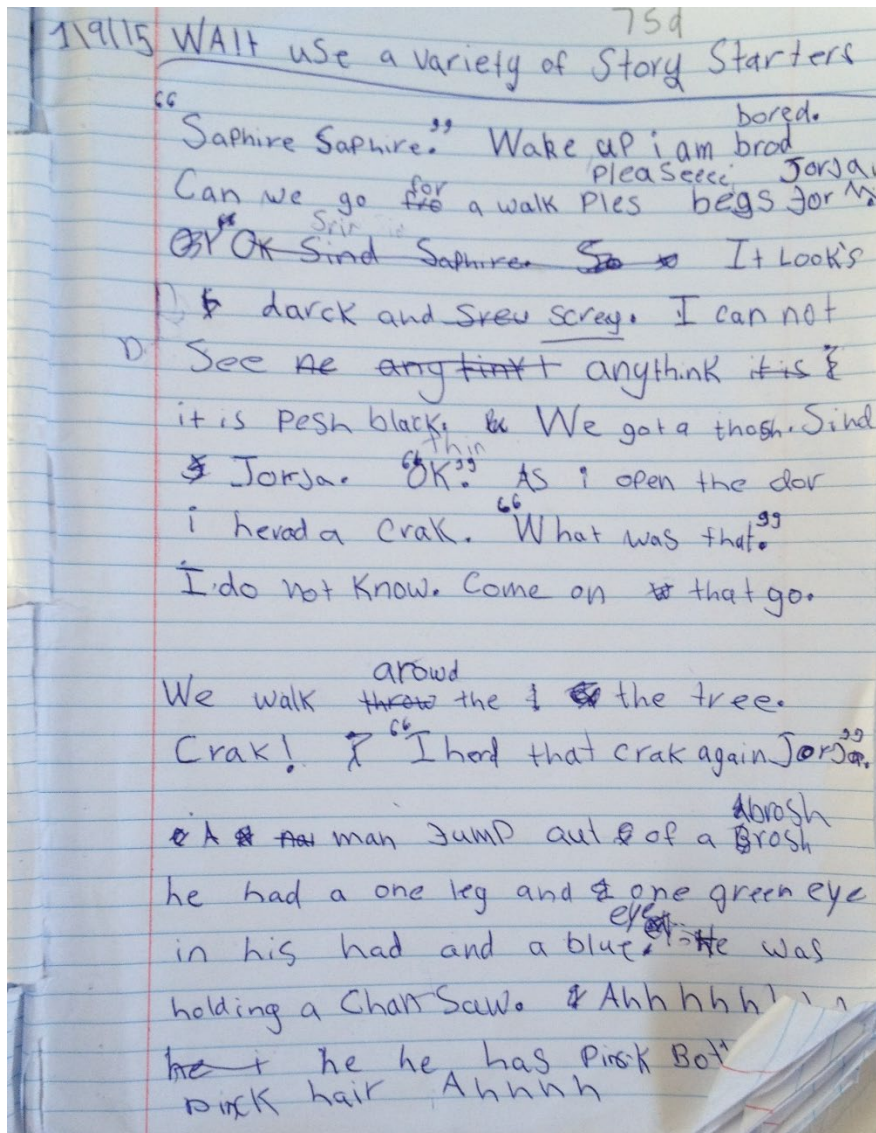 75d
1\9\15 WAlt use a variety of Story Starters
"Saphire Saphire." Wake up i am brod bored.
Can we go fro for a walk Ples Pleaseeee begs Jor Jorja
OK Sind Saphire. So It Look's
darck and Sreu screy. I can not
D See ne anytinkt anythink it is
it is Pesh black. We got a thosh. Sind
Jorja. "OK". As i open the dor
i herod a Crak. "What was that."
I do not Know. Come on that go.
We walk throw arowd the the tree.
Crak! "I herd that crak again Jorja."
A man Jump aut of a Brosh brosh
he had a one leg and one green eye
in his had and a blue eye. He was
holding a Chan Saw. Ahhhhhh
he he he has Pinck Bot
pinck hair Ahhhh